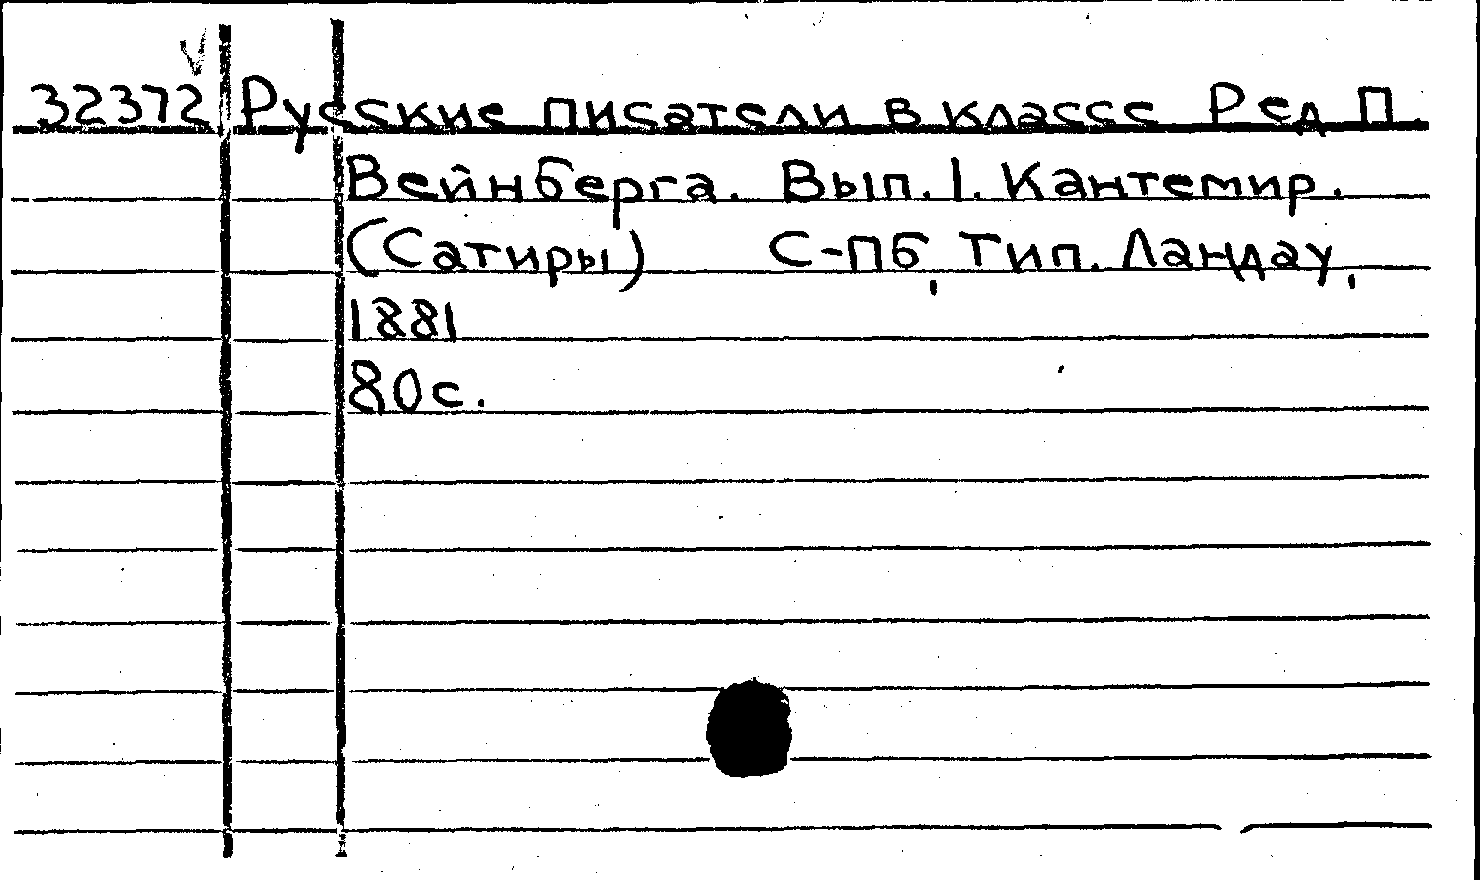 32372 Русские писатели в классе Ред П.
Вейнберга. Вып. 1. Кантемир.
(Сатиры) С-Пб, Тип. Ландау,
1881
80с.